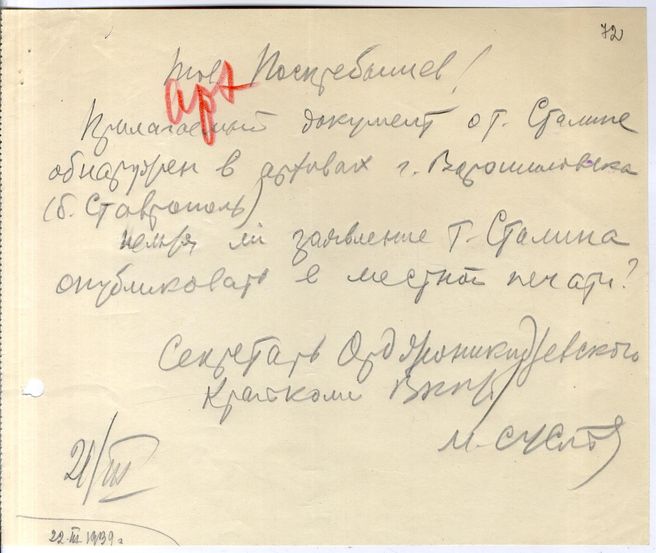 72
Тов. Поскребышев!
Арх
Прилагаемый документ о т. Сталине
обнаружен в архивах г. Ворошиловска
(б. Ставрополь)
Нельзя ли заявление т. Сталина
опубликовать в местной печати?
Секретарь Орджоникидзевского
Крайкома ВКП(б)
М. Суслов
21/III
22.III.1939 г.